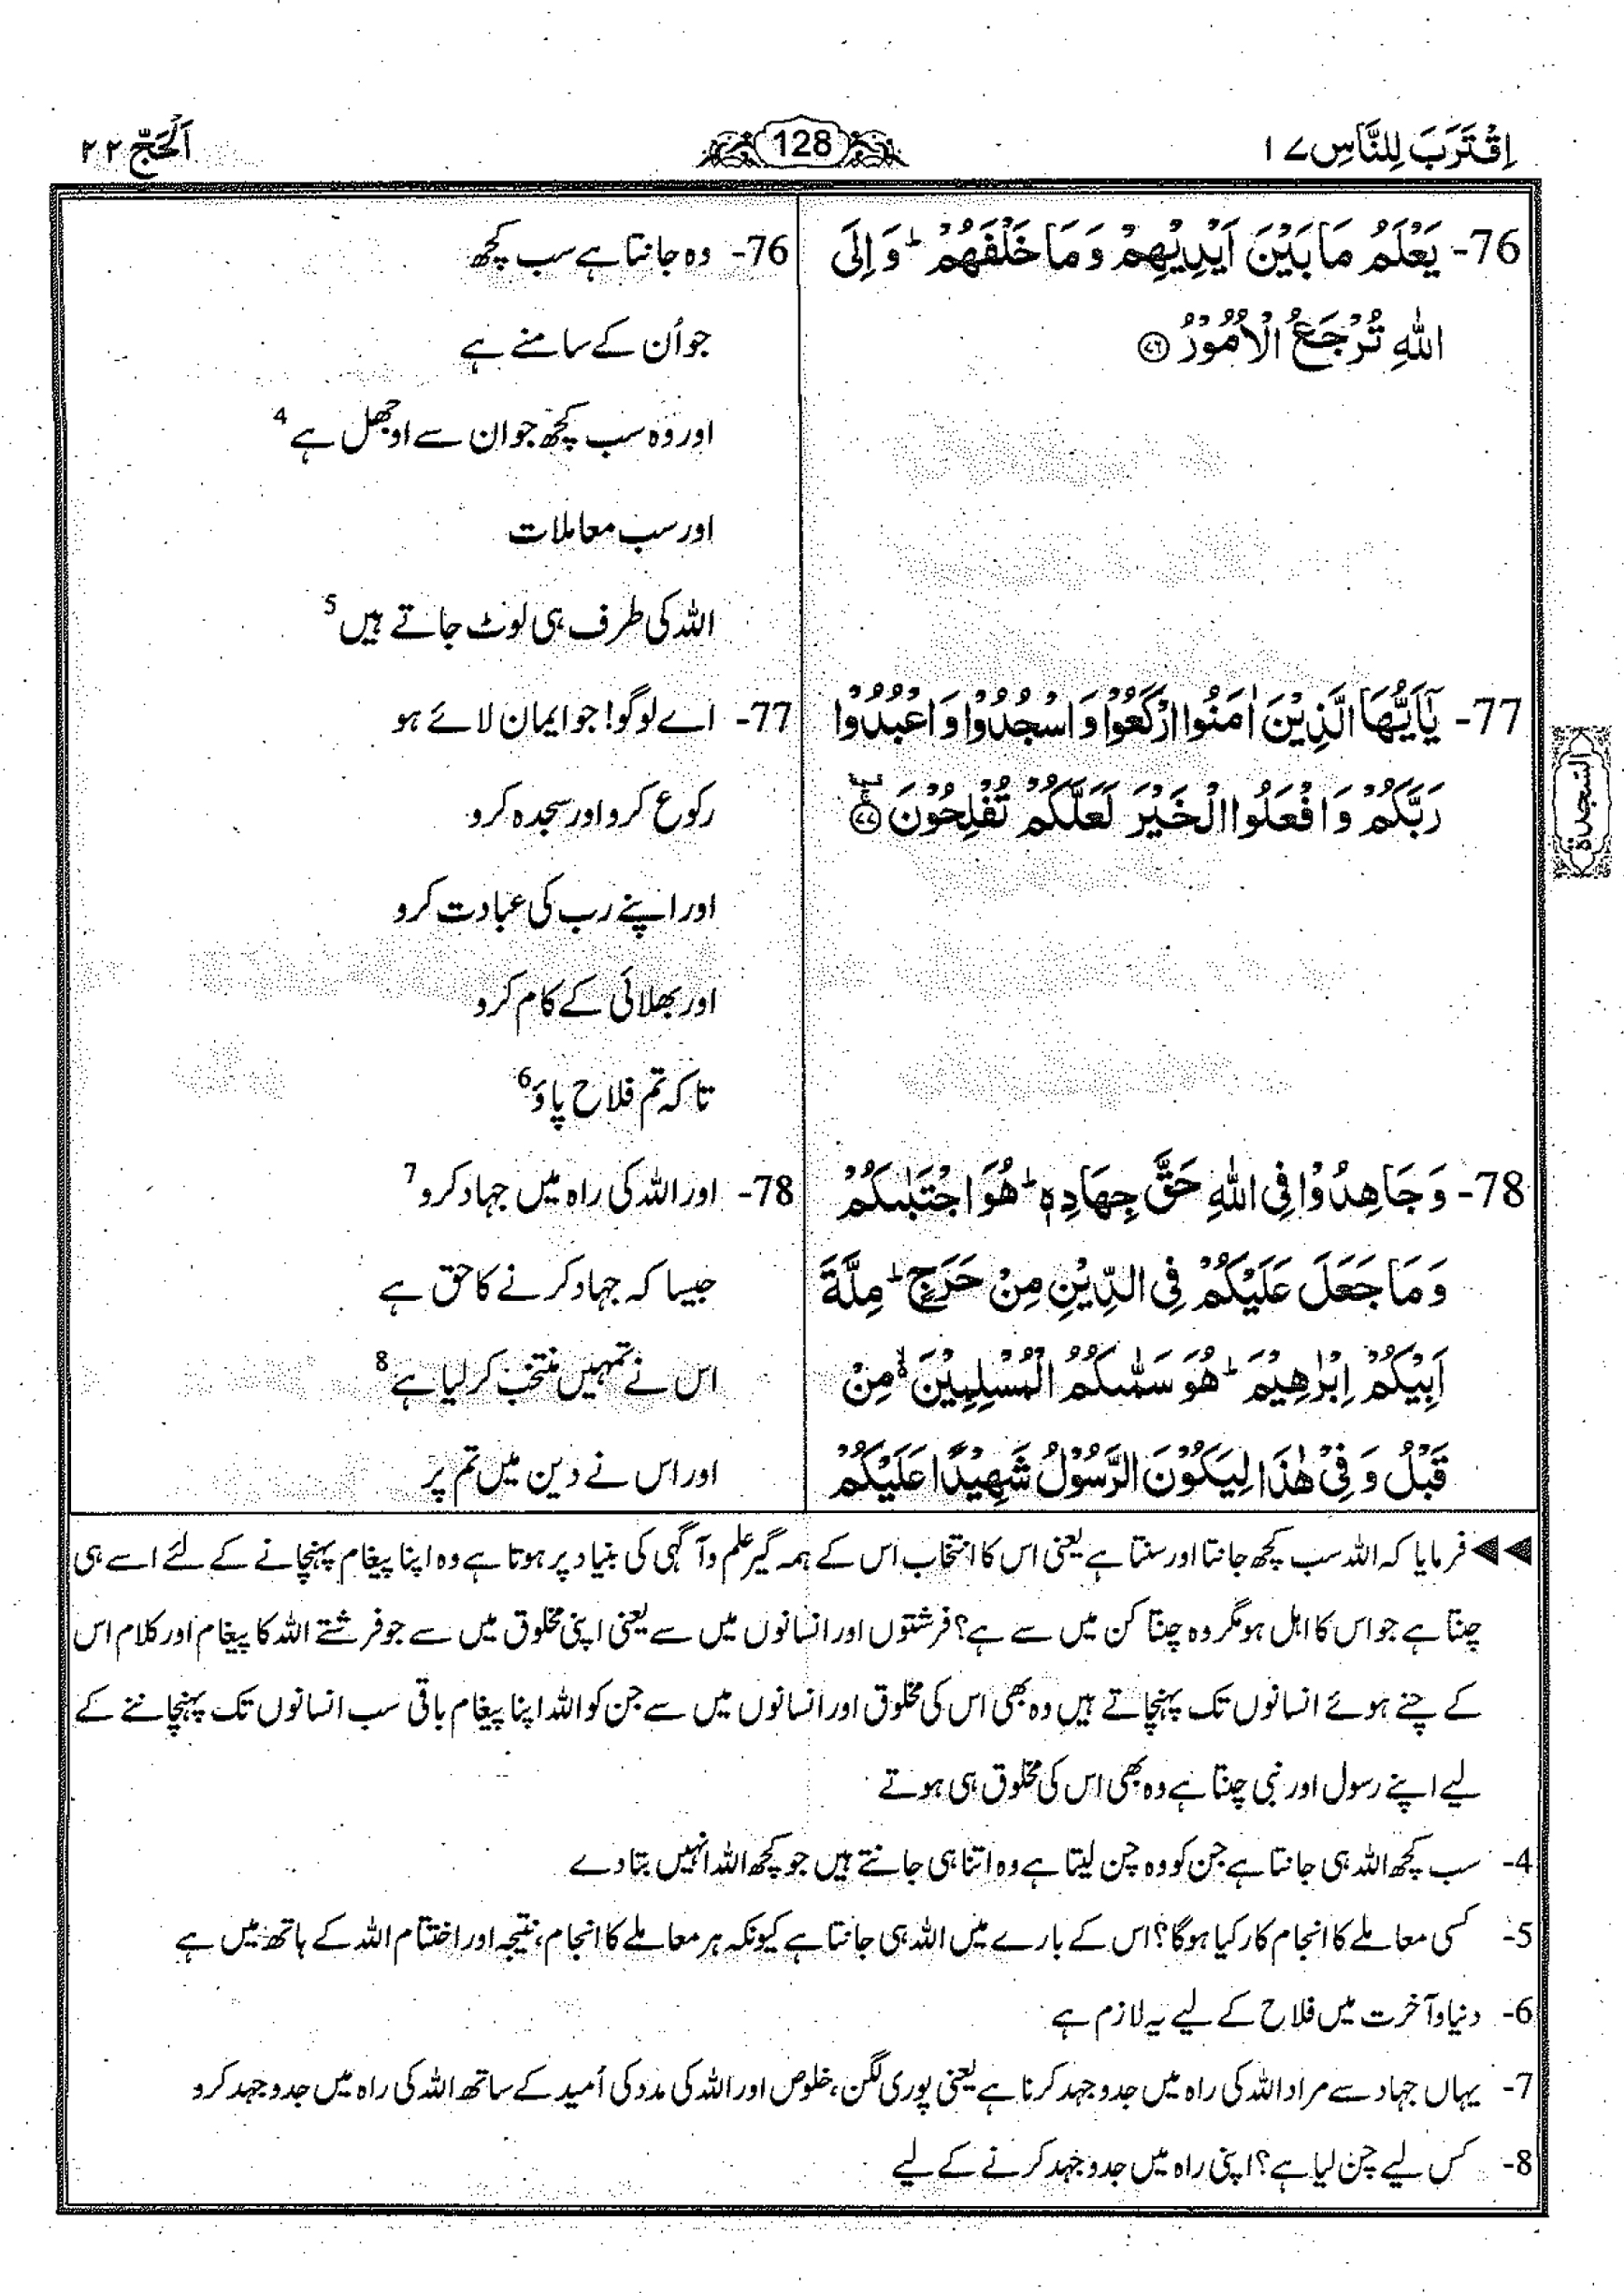 اِقْتَرَبَ لِلنَّاسِ ۱۷
128
اَلْحَجّ ۲۲
76- يَعْلَمُ مَا بَيْنَ اَيْدِيْهِمْ وَمَا خَلْفَهُمْ ؕ وَ اِلَى
اللّٰهِ تُرْجَعُ الْاُمُوْرُ ﴿۷۶﴾
77- يٰۤاَيُّهَا الَّذِيْنَ اٰمَنُوا ارْكَعُوْا وَ اسْجُدُوْا وَ اعْبُدُوْا
رَبَّكُمْ وَ افْعَلُوا الْخَيْرَ لَعَلَّكُمْ تُفْلِحُوْنَ ﴿۷۷﴾
السجدة
78- وَ جَاهِدُوْا فِى اللّٰهِ حَقَّ جِهَادِهٖ ؕ هُوَ اجْتَبٰىكُمْ
وَ مَا جَعَلَ عَلَيْكُمْ فِى الدِّيْنِ مِنْ حَرَجٍ ؕ مِلَّةَ
اَبِيْكُمْ اِبْرٰهِيْمَ ؕ هُوَ سَمّٰىكُمُ الْمُسْلِمِيْنَ ۙ۬ مِنْ
قَبْلُ وَ فِىْ هٰذَا لِيَكُوْنَ الرَّسُوْلُ شَهِيْدًا عَلَيْكُمْ
76- وہ جانتا ہے سب کچھ
جو اُن کے سامنے ہے
اور وہ سب کچھ جو ان سے اوجھل ہے 4
اور سب معاملات
اللہ کی طرف ہی لوٹ جاتے ہیں 5
77- اے لوگو! جو ایمان لائے ہو
رکوع کرو اور سجدہ کرو
اور اپنے رب کی عبادت کرو
اور بھلائی کے کام کرو
تا کہ تم فلاح پاؤ 6
78- اور اللہ کی راہ میں جہاد کرو 7
جیسا کہ جہاد کرنے کا حق ہے
اس نے تمہیں منتخب کر لیا ہے 8
اور اس نے دین میں تم پر
◀◀ فرمایا کہ اللہ سب کچھ جانتا اور سنتا ہے یعنی اس کا انتخاب اس کے ہمہ گیر علم و آگہی کی بنیاد پر ہوتا ہے وہ اپنا پیغام پہنچانے کے لئے اسے ہی
چنتا ہے جو اس کا اہل ہو مگر وہ چنتا کن میں سے ہے؟ فرشتوں اور انسانوں میں سے یعنی اپنی مخلوق میں سے جو فرشتے اللہ کا پیغام اور کلام اس
کے چنے ہوئے انسانوں تک پہنچاتے ہیں وہ بھی اس کی مخلوق اور انسانوں میں سے جن کو اللہ اپنا پیغام باقی سب انسانوں تک پہنچاننے کے
لیے اپنے رسول اور نبی چنتا ہے وہ بھی اس کی مخلوق ہی ہوتے
4- سب کچھ اللہ ہی جانتا ہے جن کو وہ چن لیتا ہے وہ اتنا ہی جانتے ہیں جو کچھ اللہ انہیں بتا دے
5- کسی معاملے کا انجام کار کیا ہوگا؟ اس کے بارے میں اللہ ہی جانتا ہے کیونکہ ہر معاملے کا انجام، نتیجہ اور اختتام اللہ کے ہاتھ میں ہے
6- دنیا و آخرت میں فلاح کے لیے یہ لازم ہے
7- یہاں جہاد سے مراد اللہ کی راہ میں جدوجہد کرنا ہے یعنی پوری لگن، خلوص اور اللہ کی مدد کی اُمید کے ساتھ اللہ کی راہ میں جدوجہد کرو
8- کس لیے چن لیا ہے؟ اپنی راہ میں جدوجہد کرنے کے لیے